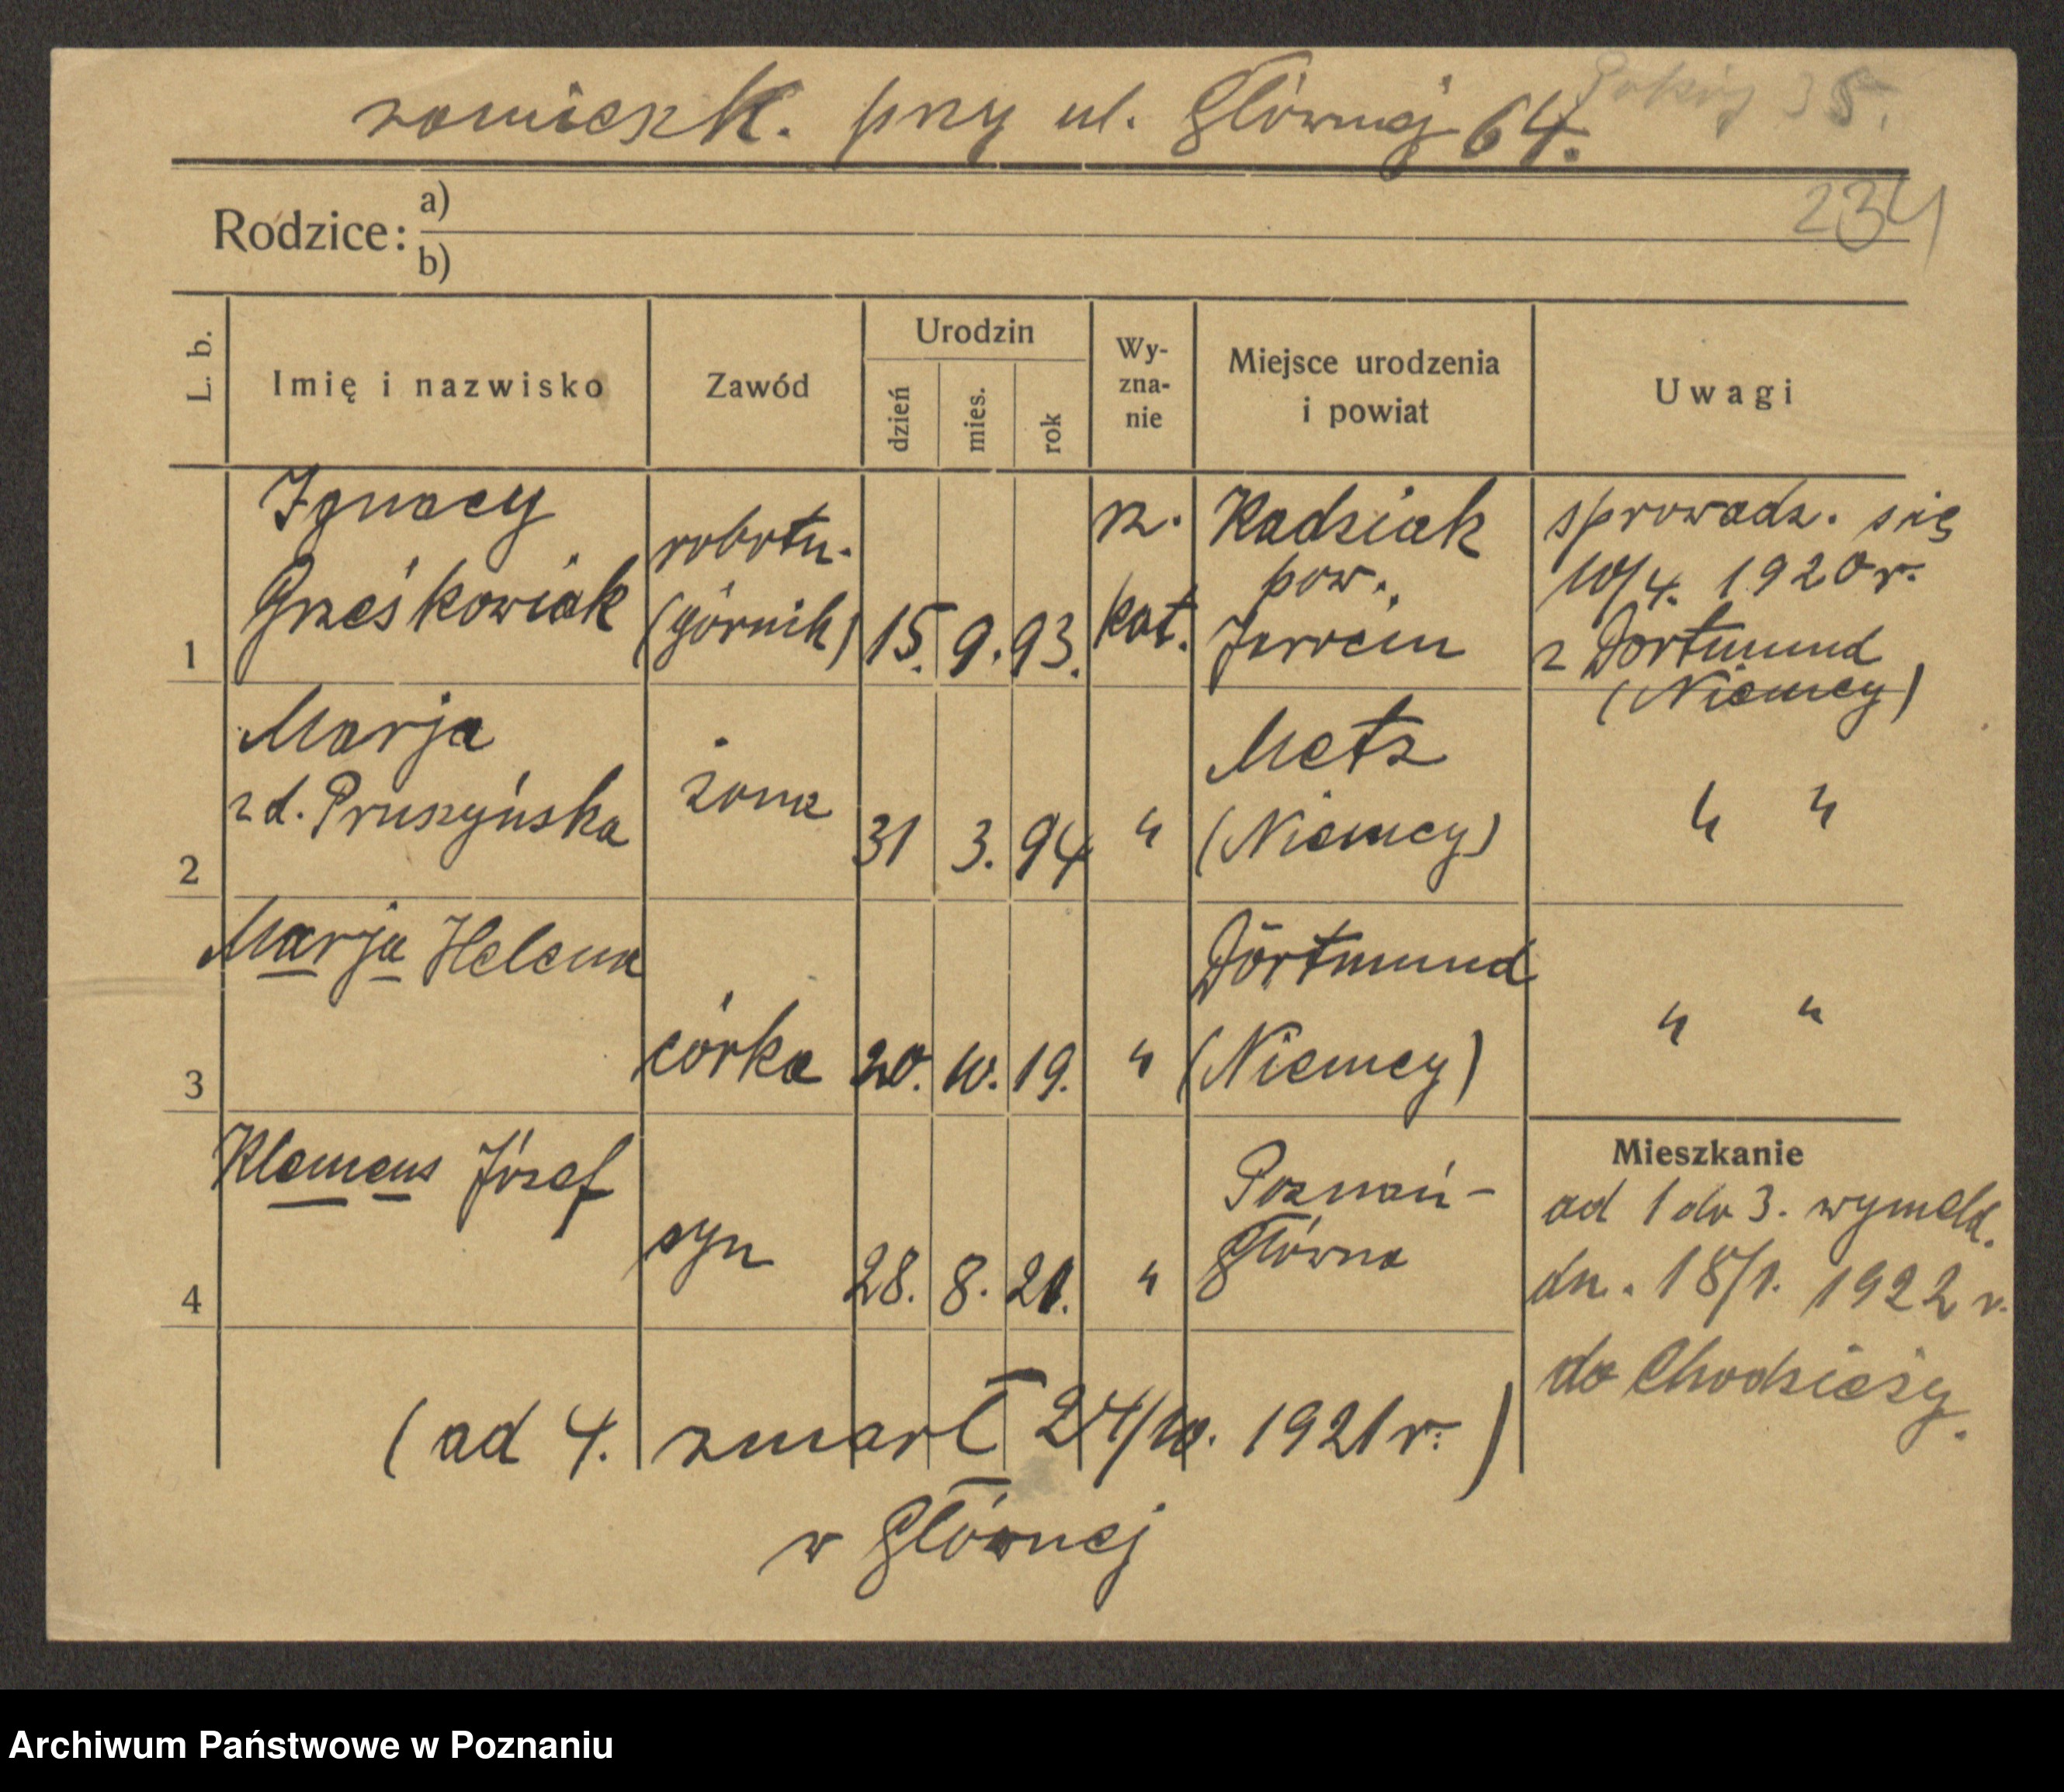 zamieszk. przy ul. Głównej 64.
35.
234
Rodzice: a)
b)
L. b. Imię i nazwisko Zawód Urodzin dzień mies. rok Wy-zna-nie Miejsce urodzenia i powiat Uwagi
1 Ignacy Grześkowiak robotn. (górnik) 15. 9. 93. rz. kat. Radziak pow. Jarocin sprowadz. się 10/4. 1920 r. z Dortmund (Niemcy)
2 Marja z d. Pruszyńska żona 31 3. 94 " Metz (Niemcy) " "
3 Marja Helena córka 20. 10. 19. " Dortmund (Niemcy) " "
4 Klemens Józef syn 28. 8. 21. " Poznań-Główna
Mieszkanie
ad 1 do 3. wymeld.
dn. 18/1. 1922 r.
do Chodzieży.
(ad 4. zmarł 24/10. 1921 r.)
w Głównej
Archiwum Państwowe w Poznaniu